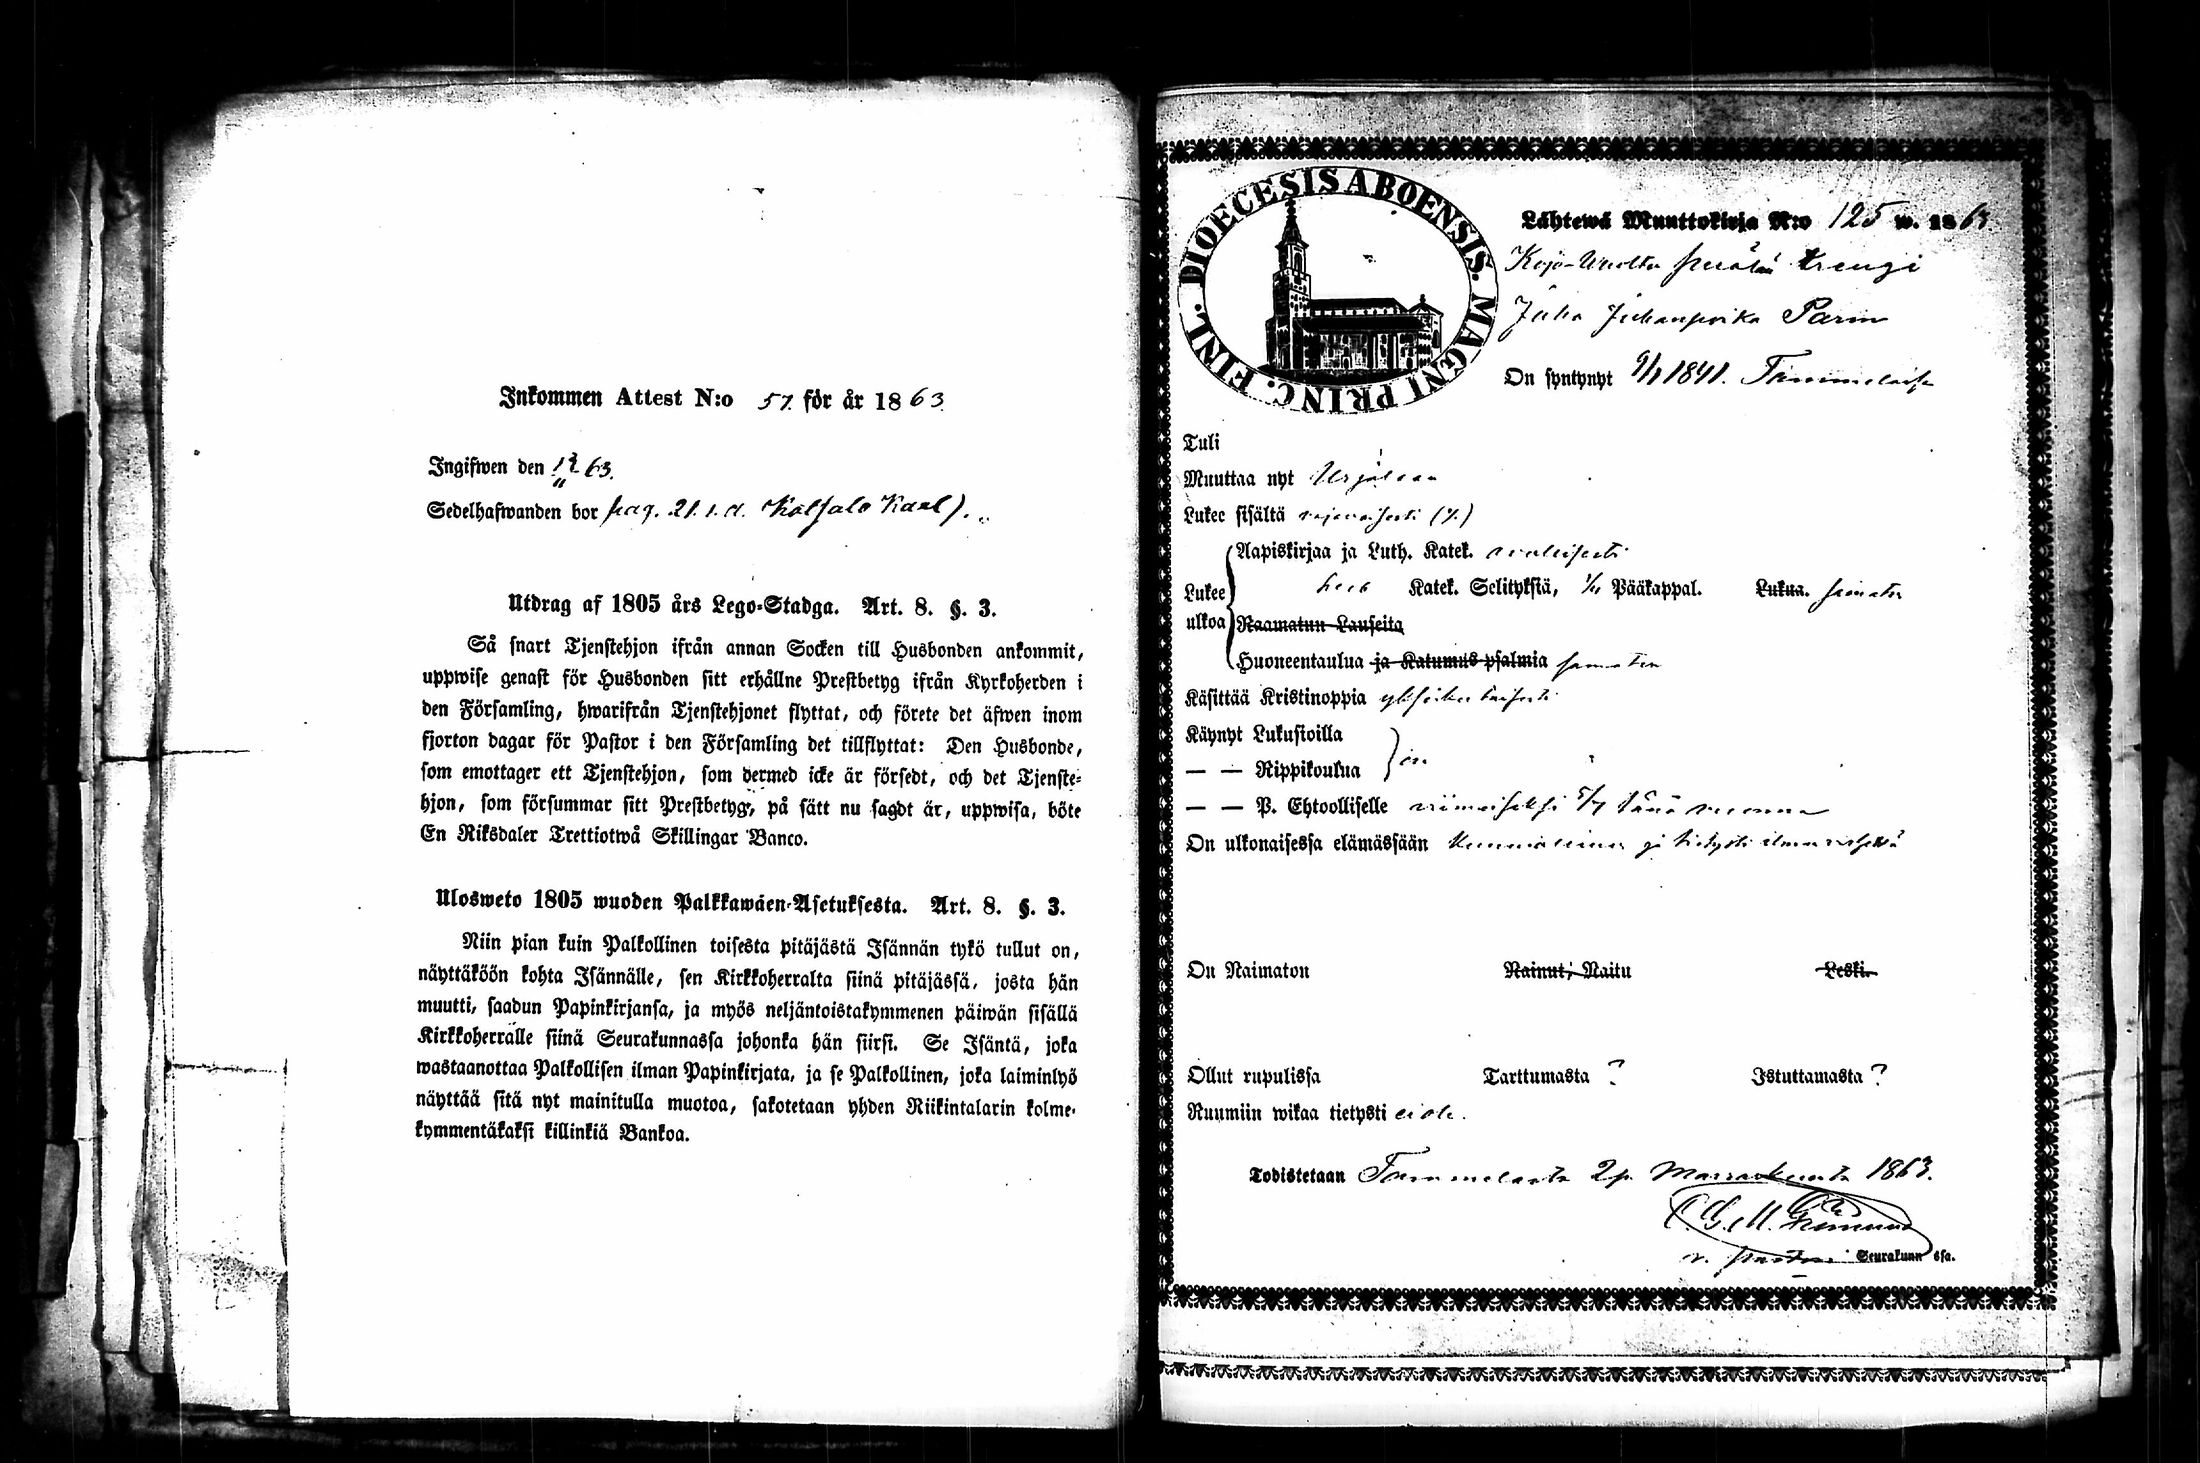 Inkommen Attest N:o 57. för år 1863
Ingifwen den 63.
Sedelhafwanden bor pag. 21.
Utdrag af 1805 års Lego-Stadga. Art. 8. §. 3.
Så snart Tjenstehjon ifrån annan Socken till Husbonden ankommit,
uppwise genast för Husbonden sitt erhållne Prestbetyg ifrån Kyrkoherden i
den Församling, hwarifrån Tjenstehjonet flyttat, och förete det äfwen inom
fjorton dagar för Pastor i den Församling det tillflyttat: Den Husbonde,
som emottager ett Tjenstehjon, som dermed icke är försedt, och det Tjenste-
hjon, som försummar sitt Prestbetyg, på sätt nu sagdt är, uppwisa, böte
En Riksdaler Trettiotwå Skillingar Banco.
Ulosweto 1805 wuoden Palkkawäen-Asetuksesta. Art. 8. §. 3.
Niin pian kuin Palkollinen toisesta pitäjästä Isännän tykö tullut on,
näyttäköön kohta Isännälle, sen Kirkkoherralta siinä pitäjässä, josta hän
muutti, saadun Papinkirjansa, ja myös neljäntoistakymmenen päiwän sisällä
Kirkkoherralle siinä Seurakunnassa johonka hän siirsi. Se Isäntä, joka
wastaanottaa Palkollisen ilman Papinkirjata, ja se Palkollinen, joka laiminlyö
näyttää sitä nyt mainitulla muotoa, sakotetaan yhden Riikintalarin kolme-
kymmentäkaksi killinkiä Bankoa.
DIOECESIS ABOENSIS. MAGNI PRINC. FINL.
Lähtewä Muuttokirja N:o 125 w. 1863.
renki
Juha Juhanpoika Parm
On syntynyt 9/1 1841. Tammelassa
Tuli
Muuttaa nyt Urjalaan
Lukee sisältä
Lukee ulkoa
Aapiskirjaa ja Luth. Katek.
Katek. Selityksiä, Pääkappal. Lukua. samaten
Raamatun Lauseita
Huoneentaulua ja Katumus-psalmia samaten
Käsittää Kristinoppia yksinkertaisesti
Käynyt Lukusioilla
— — Rippikoulua on
— — P. Ehtoollisella viimeiseksi 5/7 tänä vuonna
On ulkonaisessa elämässään
On Naimaton Nainut, Naitu Leski.
Ollut rupulissa Tarttumasta ? Istuttamasta ?
Ruumiin wikaa tietysti ei ole.
Todistetaan Tammelasta 2 p. Marraskuuta 1863.
v. pastori Seurakunn ssa.